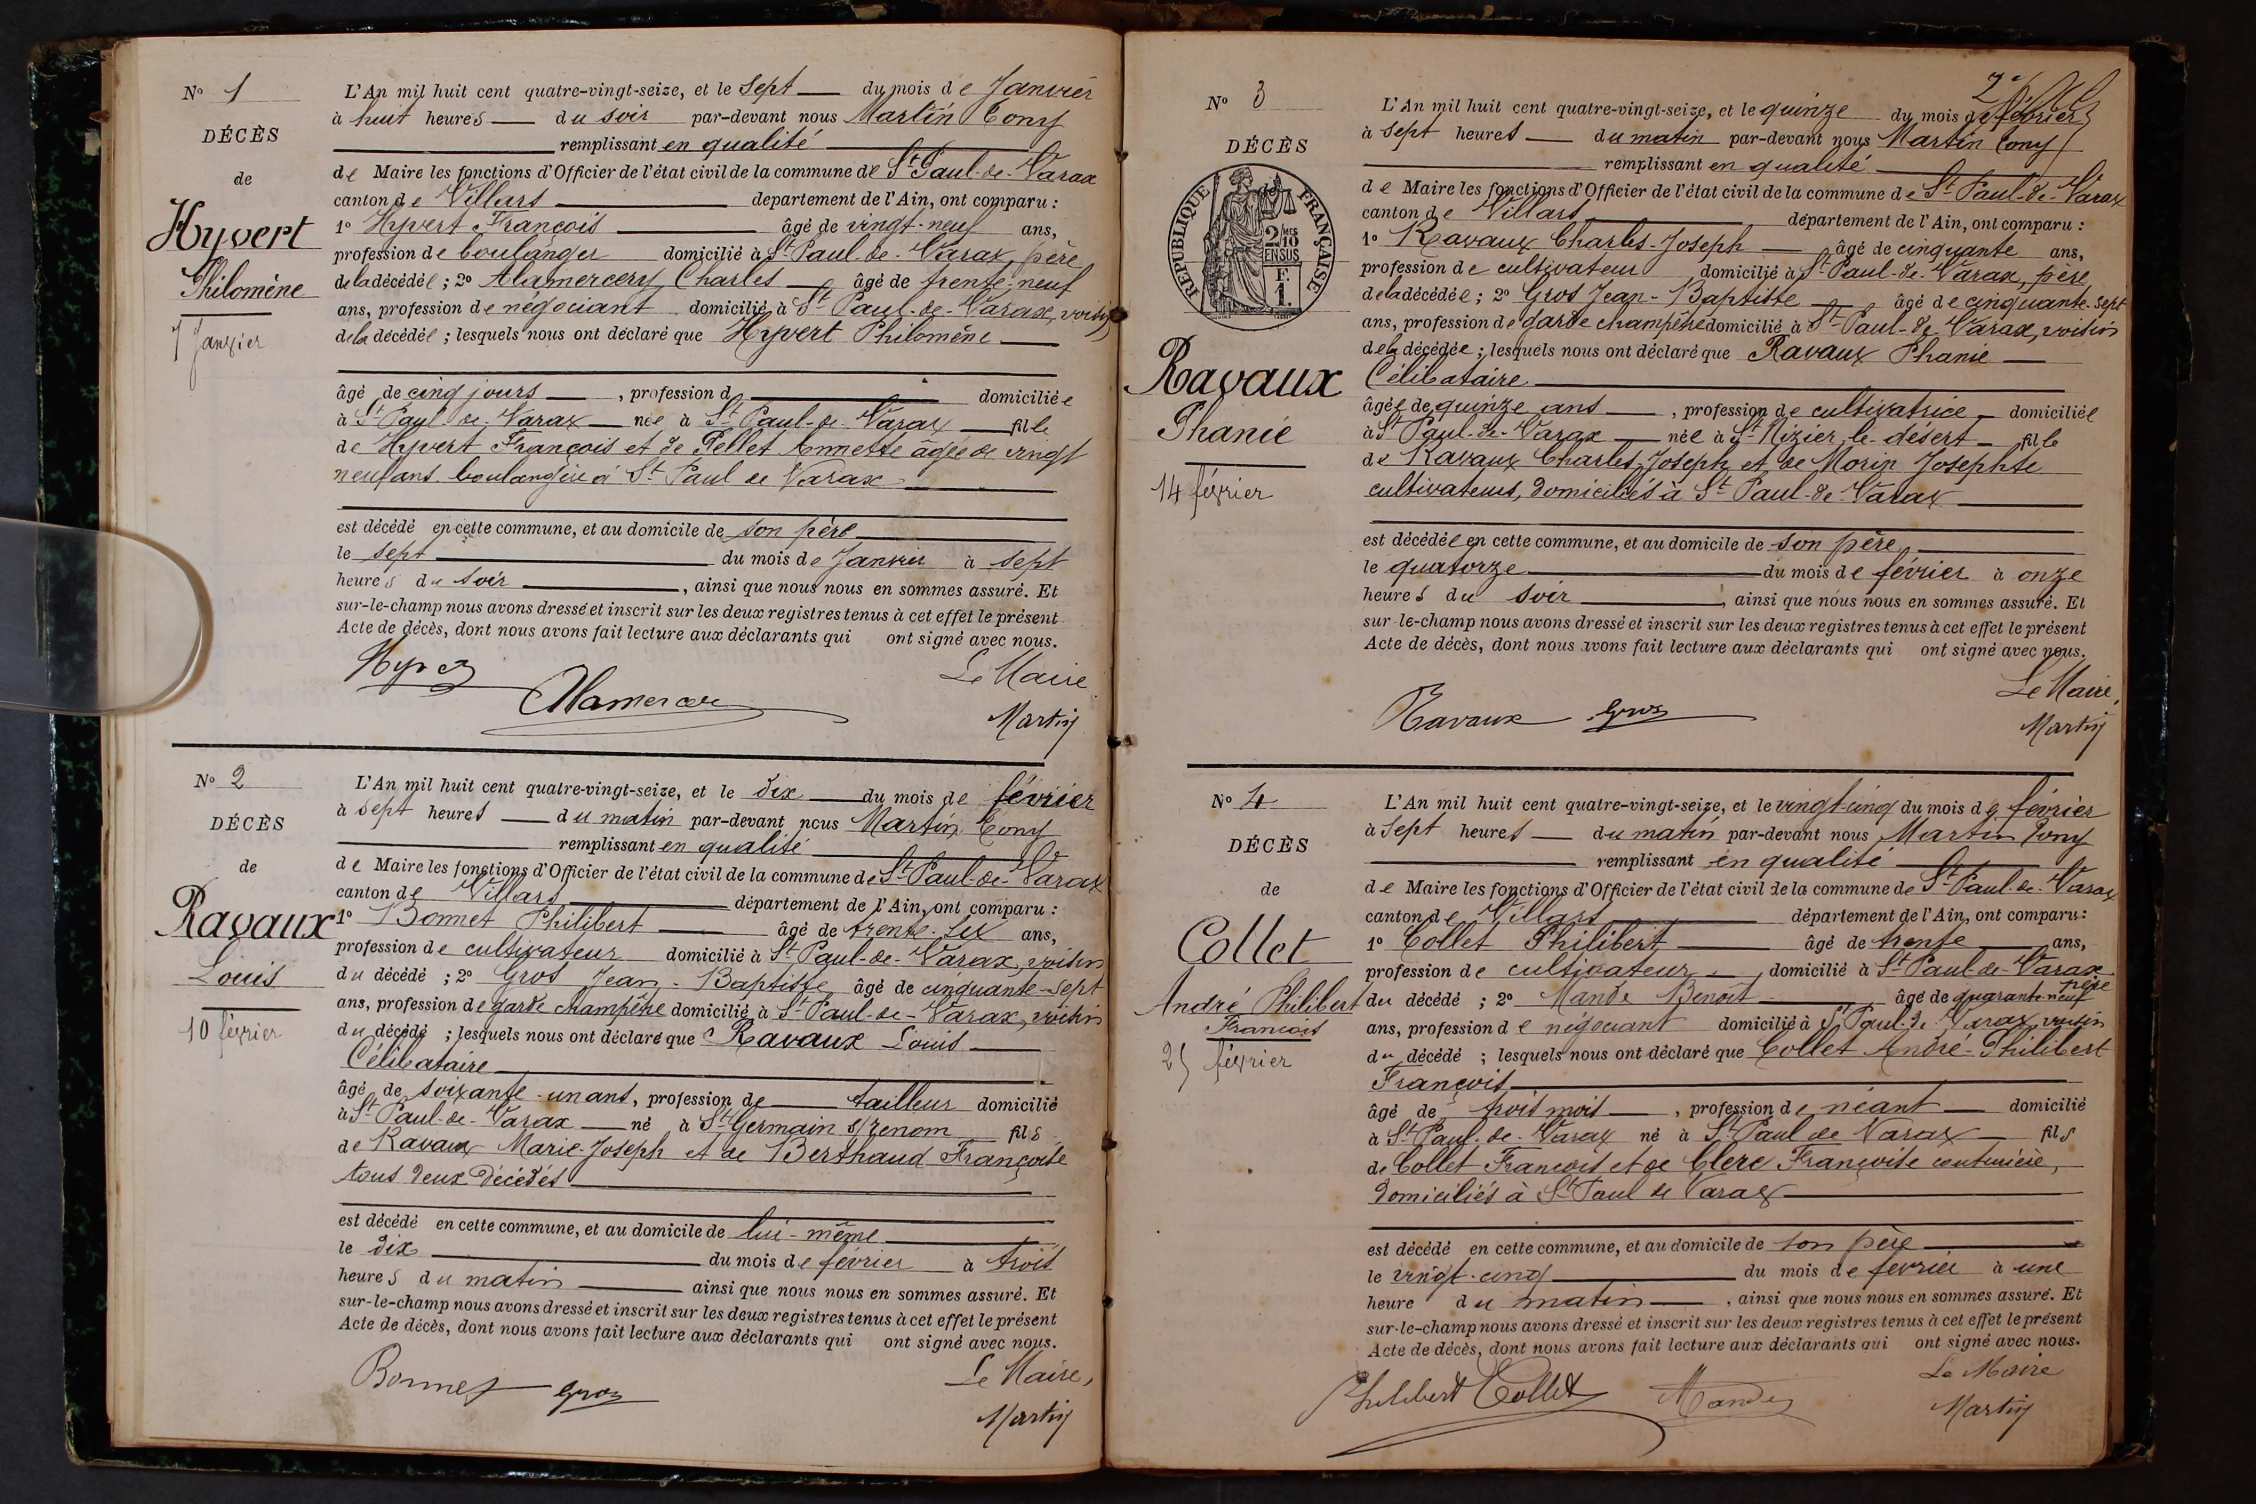 N° 1
DÉCÈS
de
Hyvert
Philomène
7 Janvier
L'An mil huit cent quatre-vingt-seize, et le sept du mois de Janvier
à huit heures du soir par-devant nous Martin Tony
remplissant en qualité
de Maire les fonctions d'Officier de l'état civil de la commune de St Paul-de-Varax
canton de Villars département de l'Ain, ont comparu :
1° Hyvert François âgé de vingt-neuf ans,
profession de boulanger domicilié à St Paul-de-Varax, père
de la décédée ; 2° Alamercery Charles âgé de trente-neuf
ans, profession de négociant domicilié à St Paul-de-Varax, voisin
de la décédée ; lesquels nous ont déclaré que Hyvert Philomène
âgé de cinq jours, profession d domiciliée
à St Paul de Varax née à St Paul-de-Varax fille
de Hyvert François et de Pellet Annette âgée de vingt
neuf ans boulangère à St Paul de Varax
est décédé en cette commune, et au domicile de son père
le sept du mois de Janvier à sept
heures du soir, ainsi que nous nous en sommes assuré. Et
sur-le-champ nous avons dressé et inscrit sur les deux registres tenus à cet effet le présent
Acte de décès, dont nous avons fait lecture aux déclarants qui ont signé avec nous.
Le Maire
Martin
N° 2
DÉCÈS
de
Ravaux
Louis
10 février
L'An mil huit cent quatre-vingt-seize, et le dix du mois de février
à sept heures du matin par-devant nous Martin Tony
remplissant en qualité
de Maire les fonctions d'Officier de l'état civil de la commune de St Paul-de-Varax
canton de Villars département de l'Ain, ont comparu :
1° Bonnet Philibert âgé de trente-six ans,
profession de cultivateur domicilié à St Paul-de-Varax, voisin
du décédé ; 2° Gros Jean-Baptiste âgé de cinquante-sept
ans, profession de garde champêtre domicilié à St Paul-de-Varax, voisin
du décédé ; lesquels nous ont déclaré que Ravaux Louis
Célibataire
âgé de soixante-un ans, profession de tailleur domicilié
à St Paul-de-Varax né à St Germain s/renom fils
de Ravaux Marie-Joseph et de Berthaud Françoise
tous deux décédés
est décédé en cette commune, et au domicile de lui-même
le dix du mois de février à trois
heures du matin ainsi que nous nous en sommes assuré. Et
sur-le-champ nous avons dressé et inscrit sur les deux registres tenus à cet effet le présent
Acte de décès, dont nous avons fait lecture aux déclarants qui ont signé avec nous.
Bonnet Gros
Le Maire,
Martin
N° 3
DÉCÈS
RÉPUBLIQUE FRANÇAISE
2/10
EN SUS
F.
1.
Ravaux
Phanie
14 février
L'An mil huit cent quatre-vingt-seize, et le quinze du mois de février
à sept heures du matin par-devant nous Martin Tony
remplissant en qualité
de Maire les fonctions d'Officier de l'état civil de la commune de St Paul-de-Varax
canton de Villars département de l'Ain, ont comparu :
1° Ravaux Charles-Joseph âgé de cinquante ans,
profession de cultivateur domicilié à St Paul-de-Varax, père
de la décédée ; 2° Gros Jean-Baptiste âgé de cinquante-sept
ans, profession de garde champêtre domicilié à St Paul-de-Varax, voisin
de la décédée ; lesquels nous ont déclaré que Ravaux Phanie
Célibataire
âgée de quinze ans, profession de cultivatrice domiciliée
à St Paul-de-Varax née à St Nizier-le-désert fille
de Ravaux Charles-Joseph et de Morin Josephte
cultivateurs, domiciliés à St Paul-de-Varax
est décédée en cette commune, et au domicile de son père
le quatorze du mois de février à onze
heures du soir, ainsi que nous nous en sommes assuré. Et
sur-le-champ nous avons dressé et inscrit sur les deux registres tenus à cet effet le présent
Acte de décès, dont nous avons fait lecture aux déclarants qui ont signé avec nous.
Ravaux Gros
Le Maire,
Martin
N° 4
DÉCÈS
de
Collet
André Philibert
François
25 février
L'An mil huit cent quatre-vingt-seize, et le vingt-cinq du mois de février
à sept heures du matin par-devant nous Martin Tony
remplissant en qualité
de Maire les fonctions d'Officier de l'état civil de la commune de St Paul-de-Varax
canton de Villars département de l'Ain, ont comparu :
1° Collet Philibert âgé de trente ans,
profession de cultivateur domicilié à St Paul-de-Varax
père
du décédé ; 2° Mande Benoît âgé de quarante-neuf
ans, profession de négociant domicilié à St Paul-de Varax, voisin
du décédé ; lesquels nous ont déclaré que Collet André-Philibert
François
âgé de trois mois, profession de néant domicilié
à St Paul-de-Varax né à St Paul de Varax fils
de Collet François et de Clerc Françoise couturière,
domiciliés à St Paul de Varax
est décédé en cette commune, et au domicile de son père
le vingt-cinq du mois de février à une
heure du matin, ainsi que nous nous en sommes assuré. Et
sur-le-champ nous avons dressé et inscrit sur les deux registres tenus à cet effet le présent
Acte de décès, dont nous avons fait lecture aux déclarants qui ont signé avec nous.
Philibert Collet Mande
Le Maire
Martin